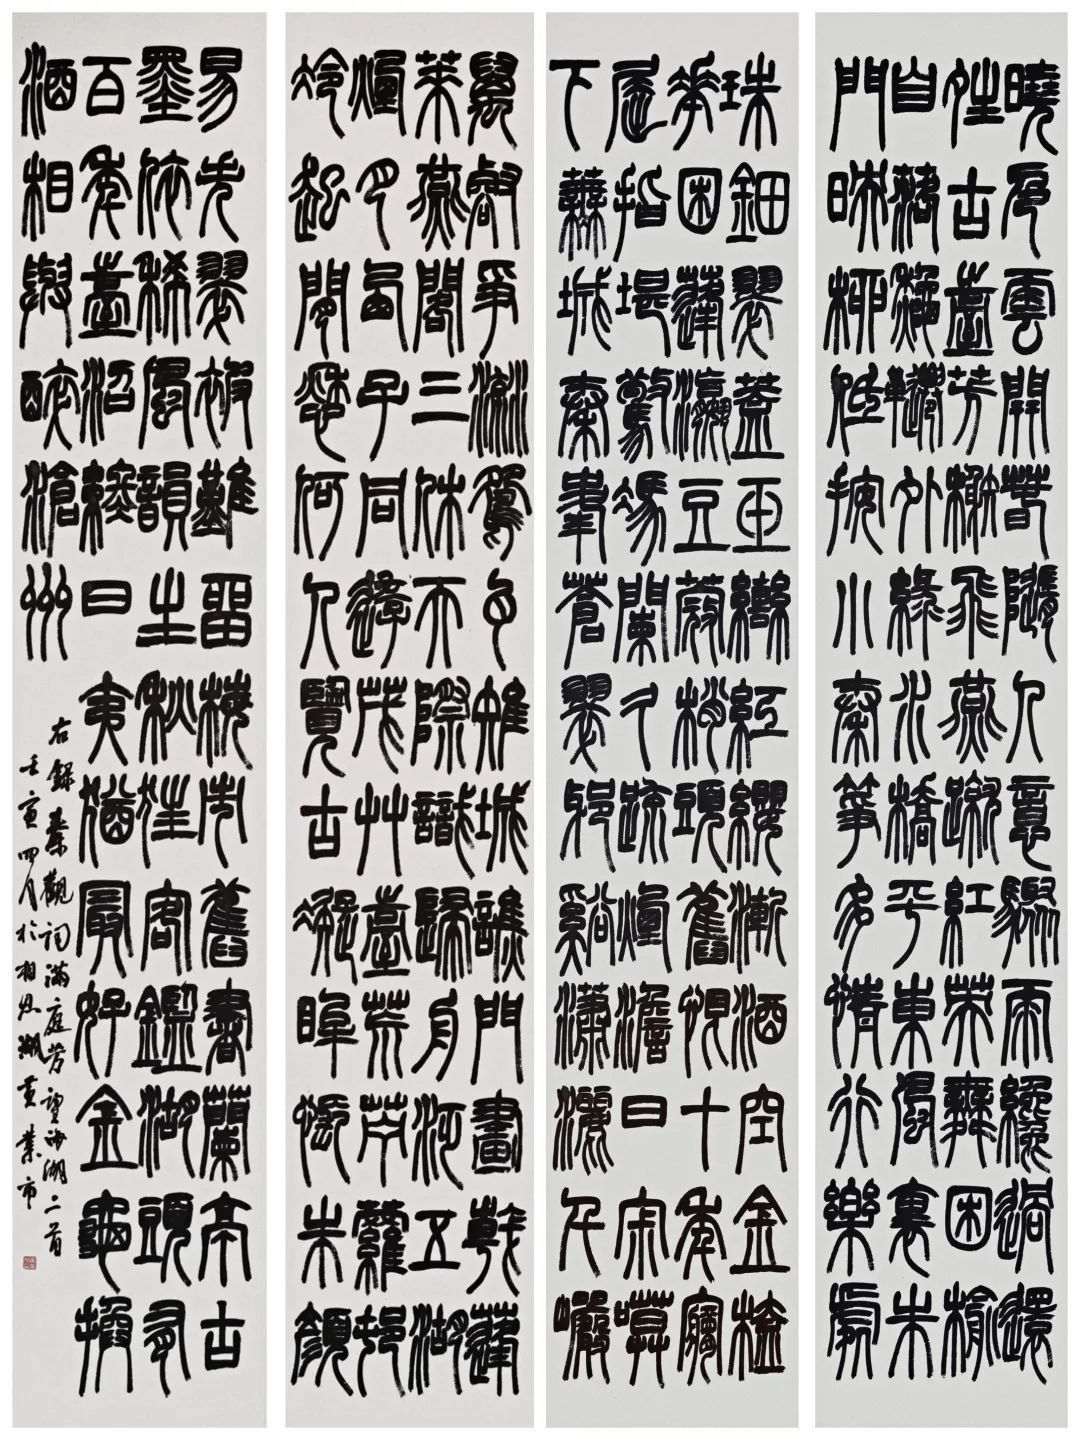 曉色雲開春隨人意驟雨纔過還
晴古臺芳榭飛燕蹴紅英舞困榆
自落秋韆外綠水橋平東風裏朱
門映柳低按小秦箏多情行樂處
珠鈿翠蓋玉轡紅纓漸酒空金榼
花困蓬瀛豆蔻梢頭舊恨十年夢
屈指堪驚憑闌久疏煙澹日寂寞
下蕪城秦峯蒼翠邪谿瀟灑千巖
萬壑爭流鴛瓦雉城譙門畫戟蓬
萊燕閣三休天際識歸舟泛五湖
煙月西子同遊茂艸臺荒苧蘿村
冷起閒愁何人覽古凝眸悵朱顏
易失翠被難留梅市舊書蘭亭古
墨依稀風韻生秋狂客鑑湖頭有
百年臺沼終日夷猶最好金龜換
酒相與醉滄州
右錄秦觀詞滿庭芳望海潮二首
壬寅四月於相思湖黃業市